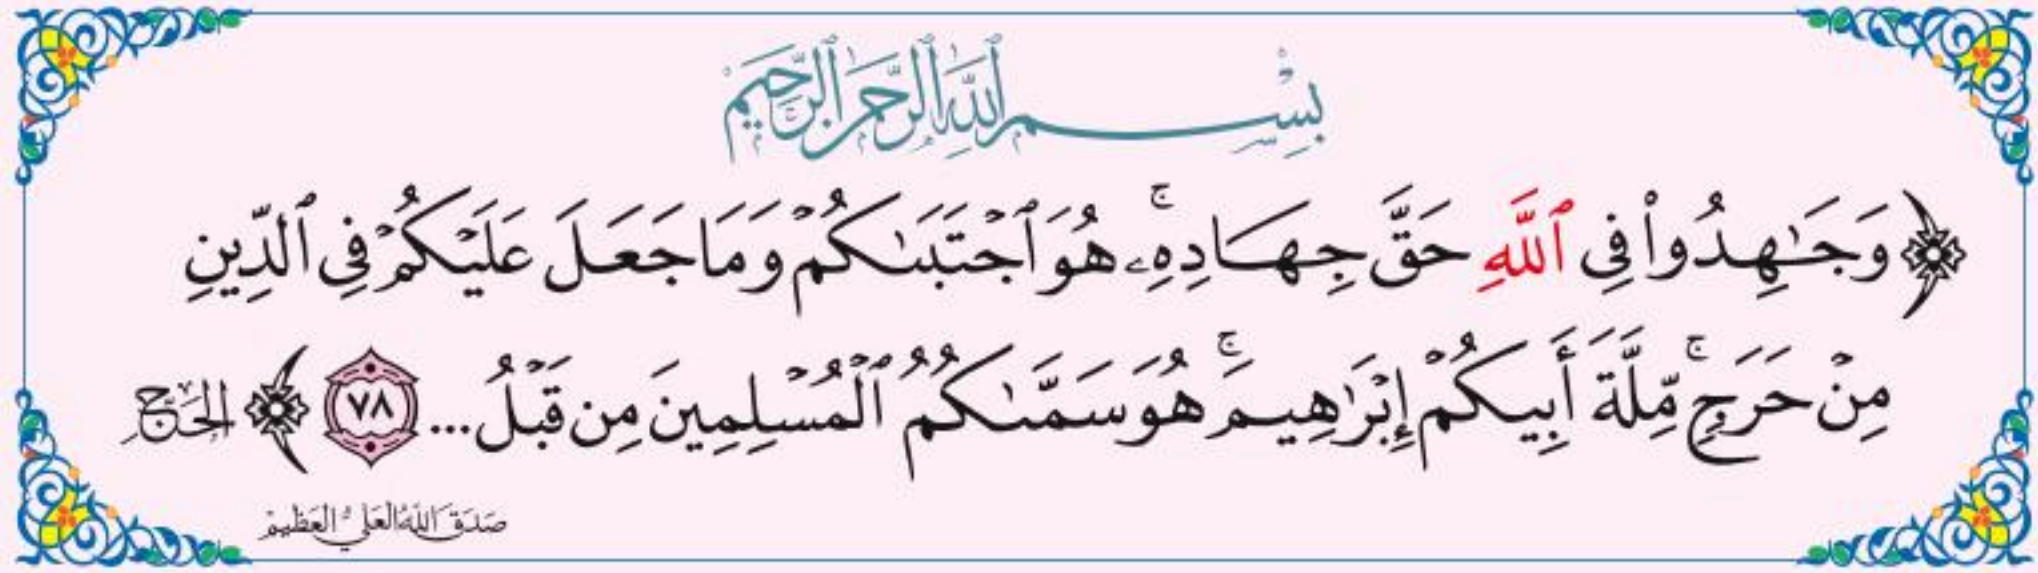 بِسْمِ ٱللَّهِ ٱلرَّحْمَٰنِ ٱلرَّحِيمِ
﴿وَجَٰهِدُوا۟ فِى ٱللَّهِ حَقَّ جِهَادِهِۦۚ هُوَ ٱجْتَبَىٰكُمْ وَمَا جَعَلَ عَلَيْكُمْ فِى ٱلدِّينِ
مِنْ حَرَجٍۚ مِّلَّةَ أَبِيكُمْ إِبْرَٰهِيمَۚ هُوَ سَمَّىٰكُمُ ٱلْمُسْلِمِينَ مِن قَبْلُ... ٧٨﴾ الحَجّ
صَدَقَ اللَّهُ العَلِيُّ العَظِيم